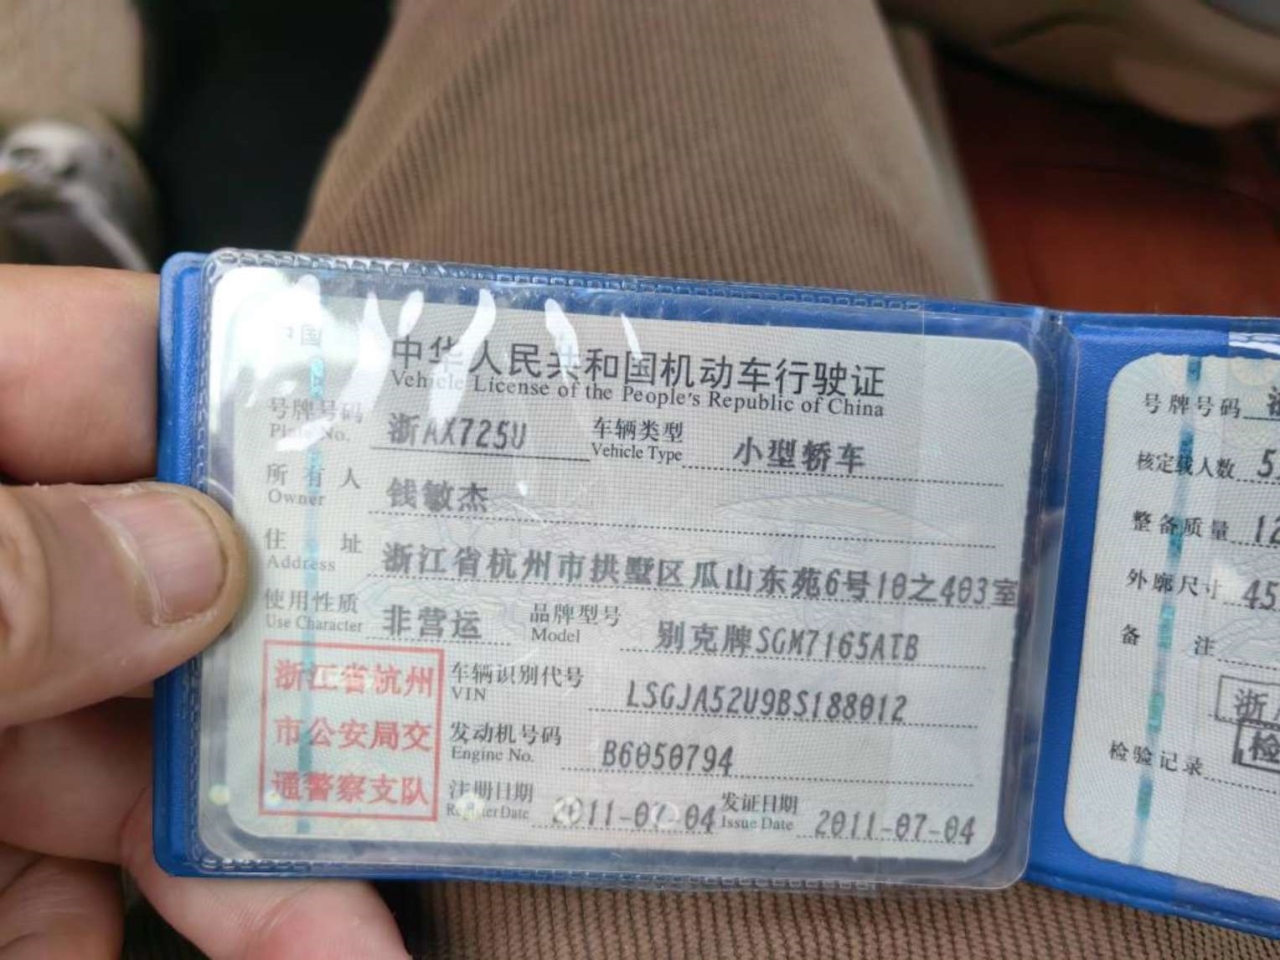 中国
中华人民共和国机动车行驶证
Vehicle License of the People's Republic of China
号牌号码 浙AX725U 车辆类型 小型轿车
Plate No. Vehicle Type
所有人 钱敏杰
Owner
住址 浙江省杭州市拱墅区瓜山东苑6号10之403室
Address
使用性质 非营运 品牌型号 别克牌SGM7165ATB
Use Character Model
浙江省杭州
市公安局交
通警察支队
车辆识别代号 LSGJA52U9BS188012
VIN
发动机号码 B6050794
Engine No.
注册日期 2011-07-04 发证日期 2011-07-04
Register Date Issue Date
号牌号码
核定载人数 5
整备质量 12
外廓尺寸 45
备注
浙
检
检验记录